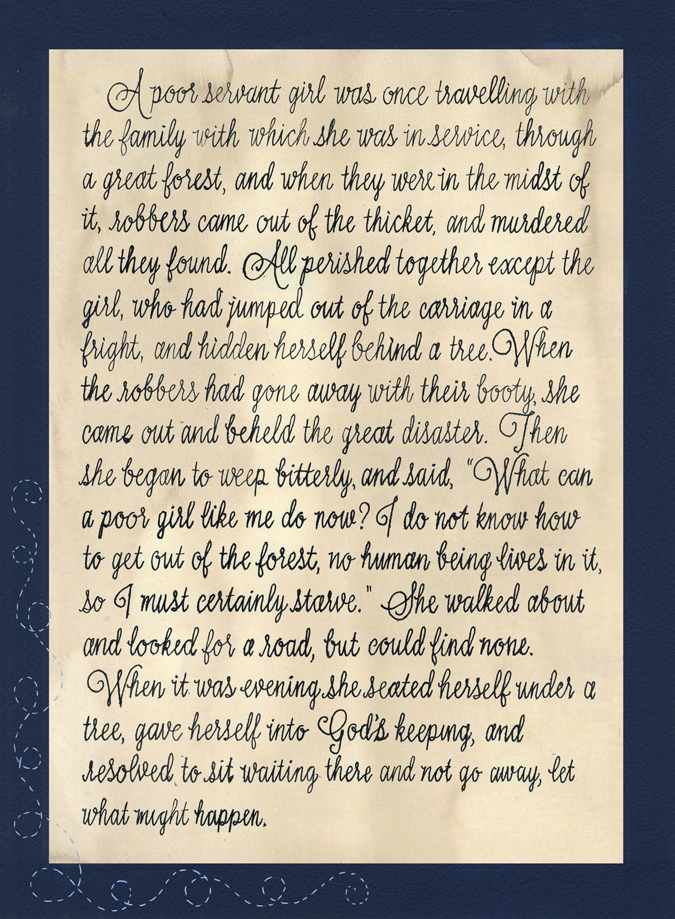 A poor servant girl was once travelling with
the family with which she was in service, through
a great forest, and when they were in the midst of
it, robbers came out of the thicket, and murdered
all they found. All perished together except the
girl, who had jumped out of the carriage in a
fright, and hidden herself behind a tree. When
the robbers had gone away with their booty, she
came out and beheld the great disaster. Then
she began to weep bitterly, and said, "What can
a poor girl like me do now? I do not know how
to get out of the forest, no human being lives in it,
so I must certainly starve." She walked about
and looked for a road, but could find none.
When it was evening she seated herself under a
tree, gave herself into God's keeping, and
resolved to sit waiting there and not go away, let
what might happen.